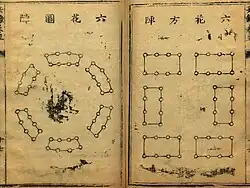 六花方陣
六花圓陣